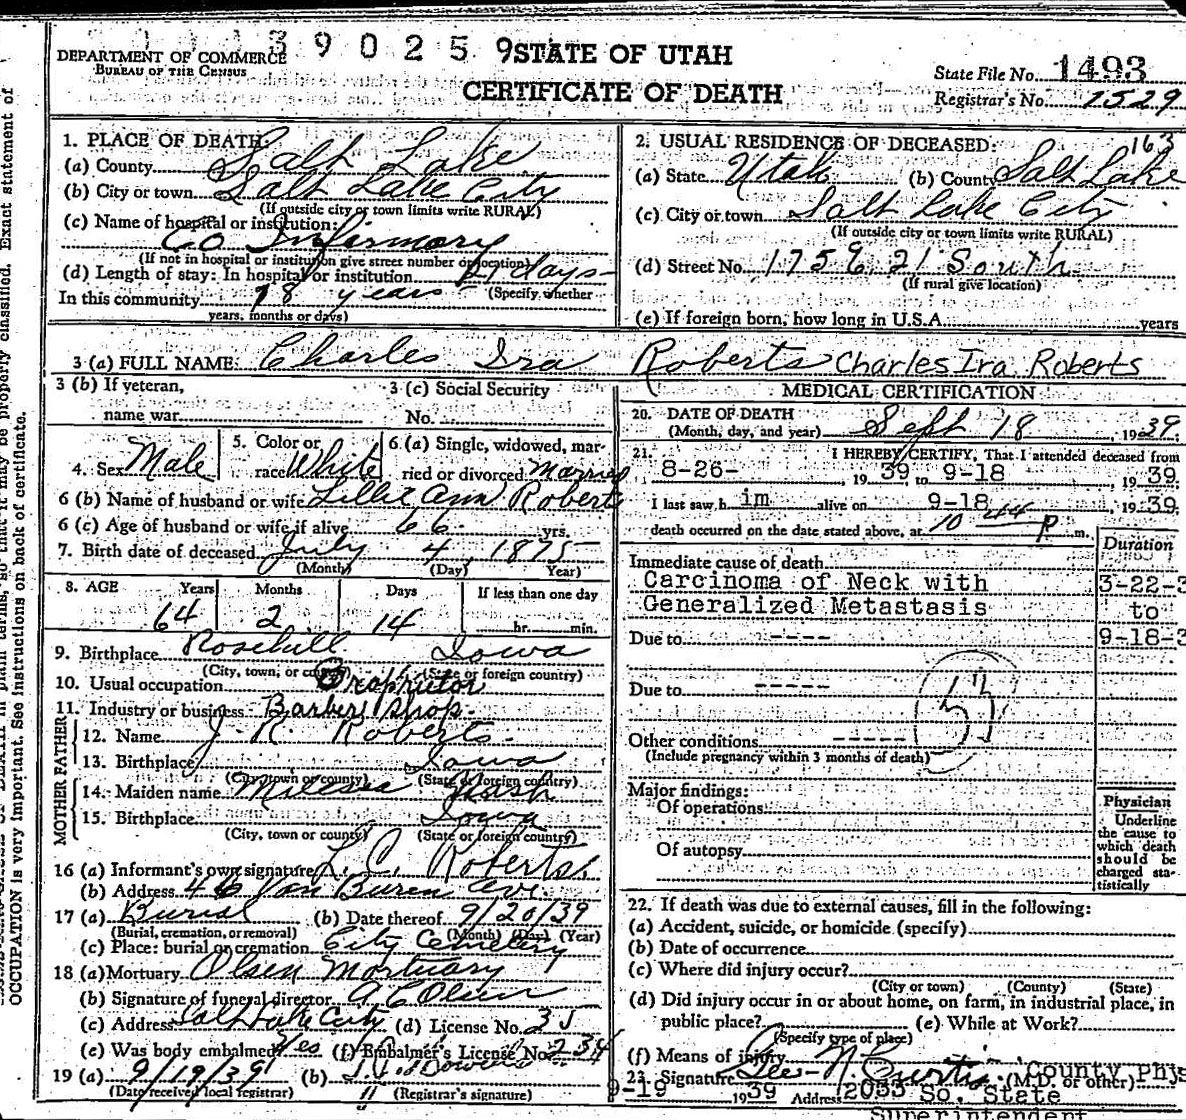 390259
DEPARTMENT OF COMMERCE
BUREAU OF THE CENSUS
STATE OF UTAH
CERTIFICATE OF DEATH
State File No. 1493
Registrar's No. 1529
1. PLACE OF DEATH:
(a) County Salt Lake
(b) City or town Salt Lake City
(If outside city or town limits write RURAL)
(c) Name of hospital or institution:
Co Infirmary
(If not in hospital or institution give street number or location)
(d) Length of stay: In hospital or institution days
In this community 18 years (Specify whether
years, months or days)
163
2. USUAL RESIDENCE OF DECEASED:
(a) State Utah (b) County Salt Lake
(c) City or town Salt Lake City
(If outside city or town limits write RURAL)
(d) Street No. 21 South
(If rural give location)
(e) If foreign born, how long in U.S.A. years
3 (a) FULL NAME: Charles Ira Roberts Charles Ira Roberts
3 (b) If veteran,
name war
3 (c) Social Security
No.
4. Sex Male
5. Color or
race White
6 (a) Single, widowed, mar-
ried or divorced Married
6 (b) Name of husband or wife Lillie Ann Roberts
6 (c) Age of husband or wife if alive 66 yrs.
7. Birth date of deceased July 4, 1875
(Month) (Day) Year)
8. AGE Years Months Days If less than one day
64 2 14 hr. min.
9. Birthplace Rosehill Iowa
(City, town, or county) (State or foreign country)
10. Usual occupation Proprietor
11. Industry or business Barber Shop.
FATHER
12. Name J. R. Roberts.
13. Birthplace Iowa
(City town or county) (State or foreign country)
MOTHER
14. Maiden name Nash
15. Birthplace Iowa
(City, town or county) (State or foreign country)
16 (a) Informant's own signature L. C. Roberts
(b) Address 46 Van Buren Ave.
17 (a) Burial (b) Date thereof 9/20/39
(Burial, cremation, or removal) (Month) (Day) (Year)
(c) Place: burial or cremation City Cemetery
18 (a) Mortuary Olsen Mortuary
(b) Signature of funeral director A C Olsen
(c) Address Salt Lake City (d) License No. 35
(e) Was body embalmed Yes (f) Embalmer's License No. 234
19 (a) 9/19/39 (b)
(Date received local registrar) (Registrar's signature)
MEDICAL CERTIFICATION
20. DATE OF DEATH
(Month, day, and year) Sept 18, 1939;
21. I HEREBY CERTIFY, That I attended deceased from
8-26-, 1939 to 9-18, 1939.
I last saw h im alive on 9-18, 1939;
death occurred on the date stated above, at 10 44 P m.
Duration
Immediate cause of death
Carcinoma of Neck with 3-22-3
Generalized Metastasis to
Due to ---- 9-18-3
Due to -----
53
Other conditions -----
(Include pregnancy within 3 months of death)
Major findings:
Of operations
Of autopsy
Physician
Underline
the cause to
which death
should be
charged sta-
tistically
22. If death was due to external causes, fill in the following:
(a) Accident, suicide, or homicide (specify)
(b) Date of occurrence
(c) Where did injury occur?
(City or town) (County) (State)
(d) Did injury occur in or about home, on farm, in industrial place, in
public place? (e) While at Work?
(Specify type of place)
(f) Means of injury
23. Signature N. Curtis County Phys
(M.D. or other)
9-19 1939 Address 2033 So. State
Superintendent
OCCUPATION is very important. See instructions on back of certificate.
plain terms, so that it may be properly classified. Exact statement of